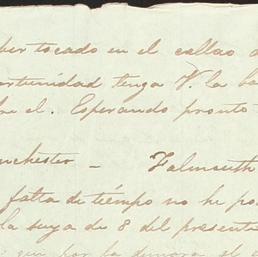 ber tocado en el callao
ortunidad tenga V. la
el. Esperando pronto
nchester — Falmouth
falta de tiempo no he po
la suya de 8 del present
que por la demora el